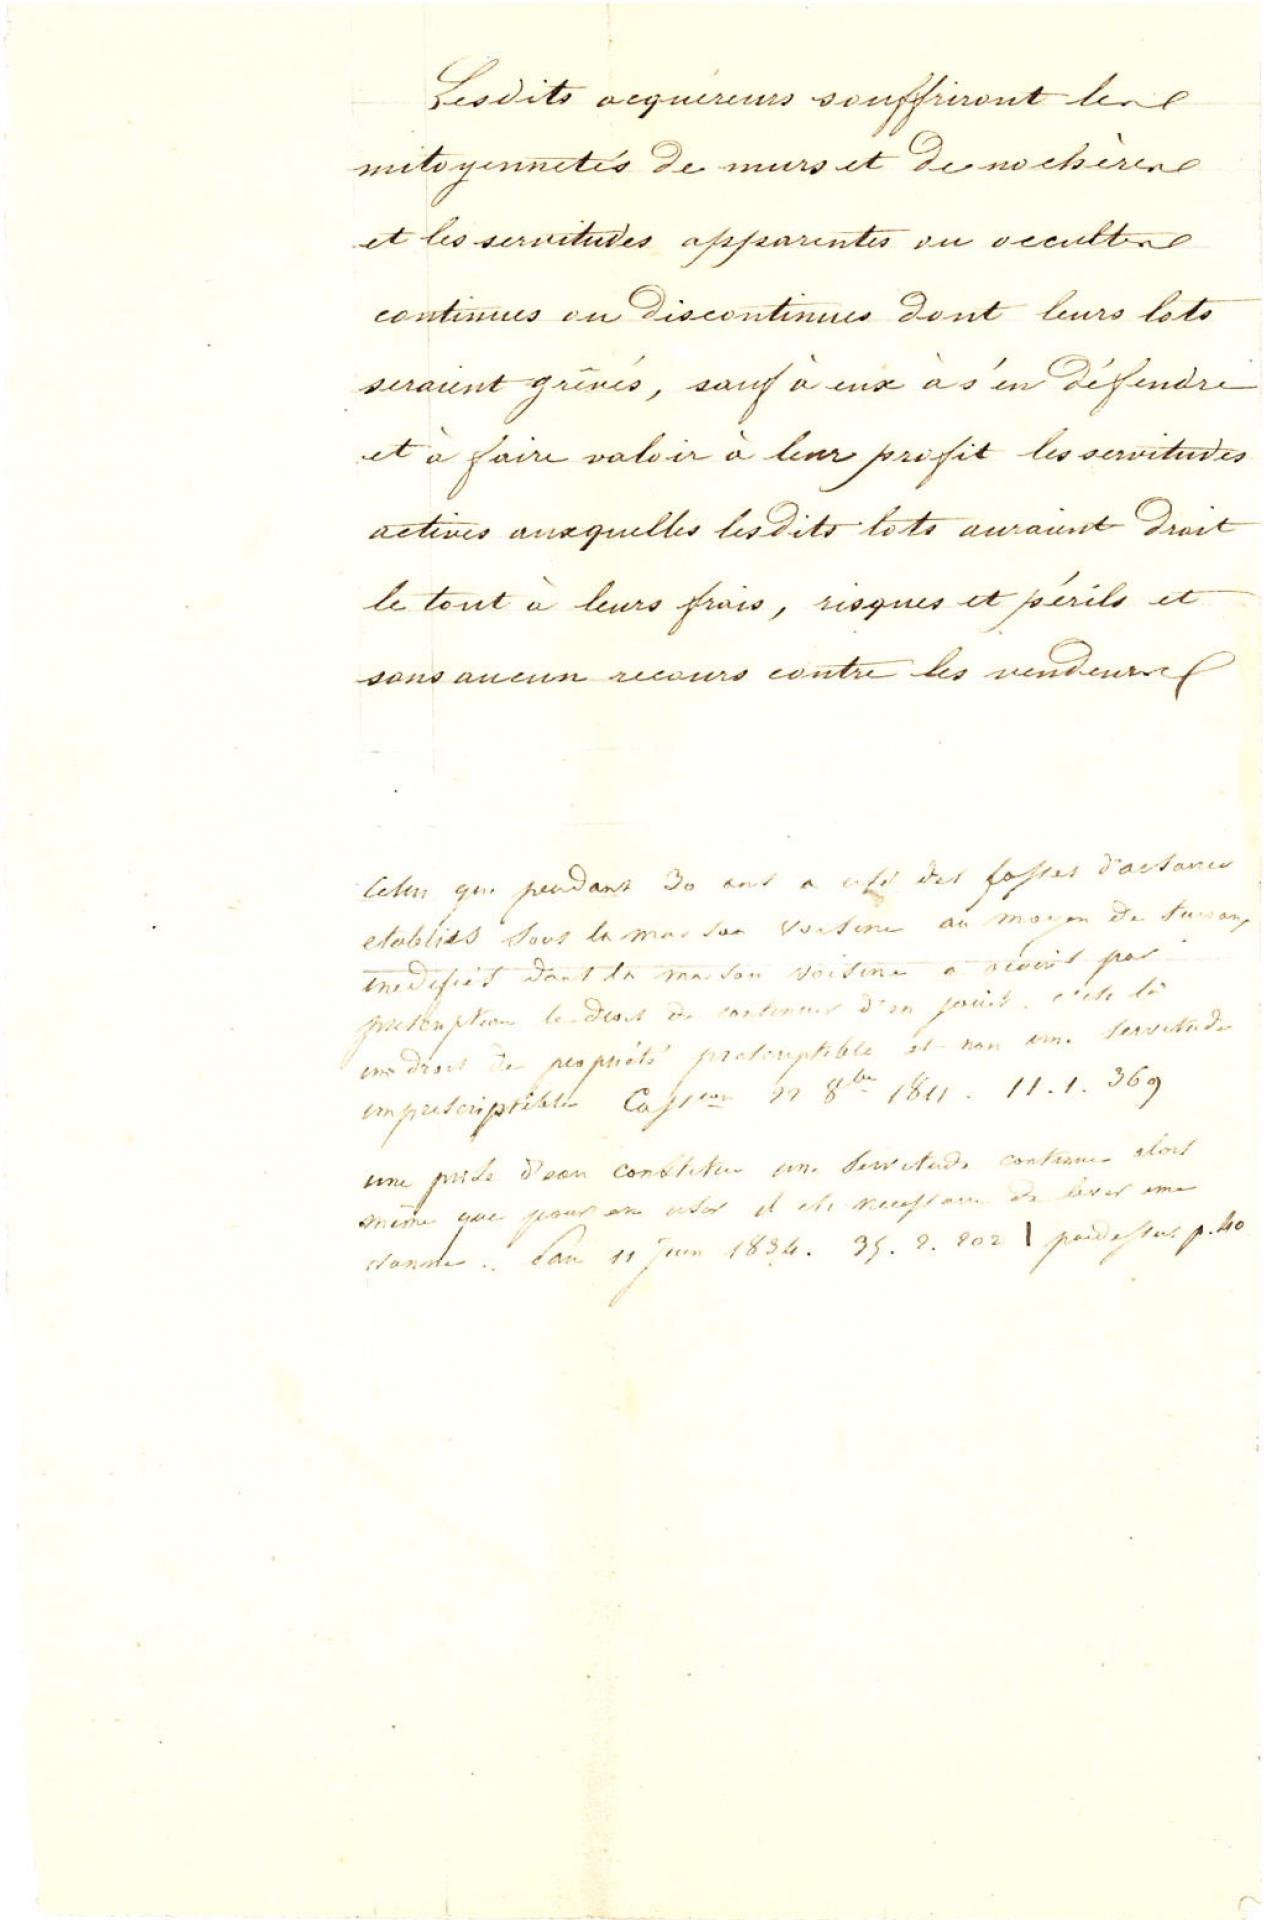 Lesdits acquéreurs souffriront les
mitoyennetés de murs et de nochères
et les servitudes apparentes ou occultes
continues ou discontinues dont leurs lots
seraient grêvés, sauf à eux à s'en défendre
et à faire valoir à leur profit les servitudes
actives auxquelles lesdits lots auraient droit
le tout à leurs frais, risques et périls et
sans aucun recours contre les vendeurs
Celui qui pendant 30 ans a usé des fosses d'aisances
etablies sous la maison voisine au moyen de tuyaux
inedifiés dans la maison voisine a acquis par
prescription le droit de continuer d'en jouir. c'est là
un droit de propriété prescriptible et non une servitude
imprescriptible Cass.on 22 8bre 1811. 11.1.369
une prise d'eau constitue une servitude continue alors
même que pour en user il est necessaire de lever une
vanne.. Pau 11 juin 1834. 35.2.202 | pardessus p.40